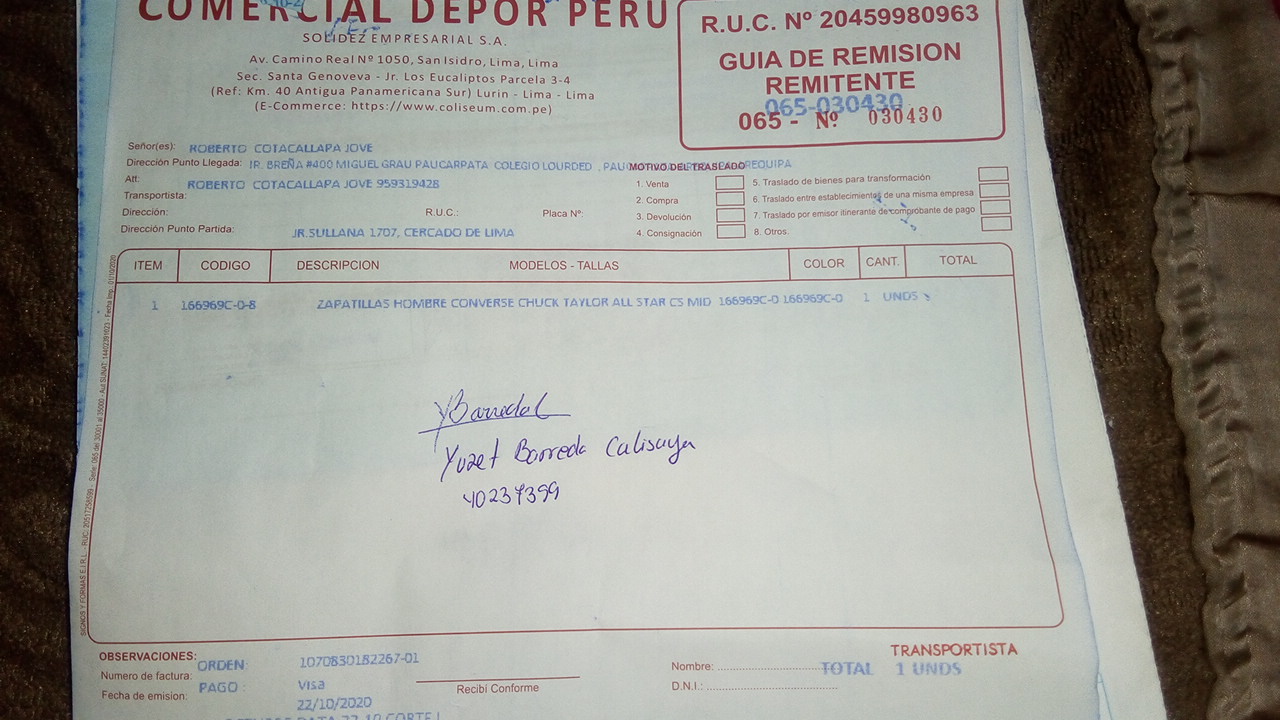 COMERCIAL DEPOR PERU
SOLIDEZ EMPRESARIAL S.A.
Av. Camino Real Nº 1050, San Isidro, Lima, Lima
Sec. Santa Genoveva - Jr. Los Eucaliptos Parcela 3-4
(Ref: Km. 40 Antigua Panamericana Sur) Lurin - Lima - Lima
(E-Commerce: https://www.coliseum.com.pe)
R.U.C. Nº 20459980963
GUIA DE REMISION
REMITENTE
065-030430
065 - Nº 030430
Señor(es): ROBERTO COTACALLAPA JOVE
Dirección Punto Llegada: JR. BREÑA #400 MIGUEL GRAU PAUCARPATA COLEGIO LOURDED , AREQUIPA
Att: ROBERTO COTACALLAPA JOVE 959319428
Transportista:
Dirección: R.U.C.: Placa Nº:
Dirección Punto Partida: JR.SULLANA 1707, CERCADO DE LIMA
MOTIVO DEL TRASLADO
1. Venta
2. Compra
3. Devolución
4. Consignación
5. Traslado de bienes para transformación
6. Traslado entre establecimientos de una misma empresa
7. Traslado por emisor itinerante de comprobante de pago
8. Otros.
ITEM CODIGO DESCRIPCION MODELOS - TALLAS COLOR CANT. TOTAL
1 166969C-0-8 ZAPATILLAS HOMBRE CONVERSE CHUCK TAYLOR ALL STAR CS MID 166969C-0 166969C-0 1 UNDS
YBarredaC
Yuzet Barreda Calisaya
40237399
SIGNOS Y FORMAS E.I.R.L. - RUC: 20517258599 - Serie: 065 del 30001 al 35000 - Aut SUNAT: 14402391623 - Fecha Imp. 01/10/2020
OBSERVACIONES:
ORDEN: 1070830182267-01
Numero de factura:
PAGO : Visa
Fecha de emision: 22/10/2020
Recibí Conforme
TRANSPORTISTA
Nombre:
D.N.I.:
TOTAL 1 UNDS